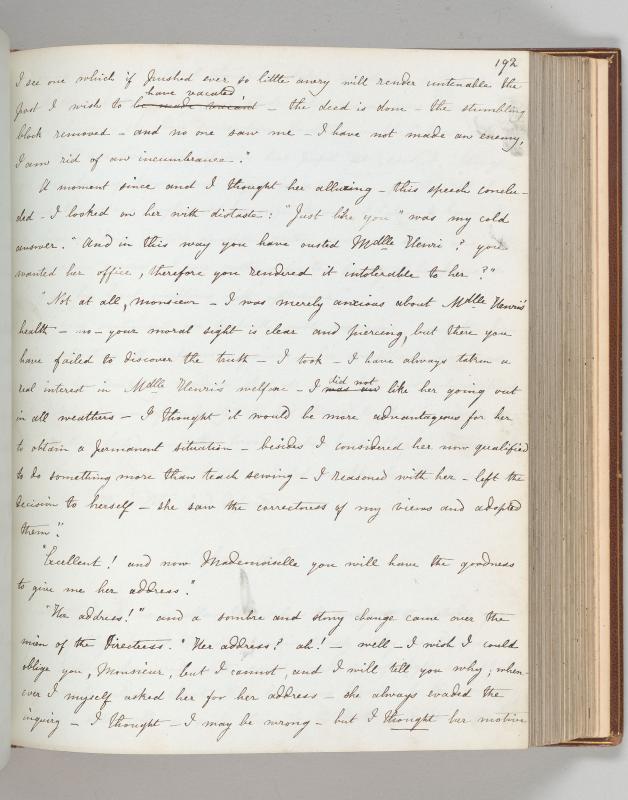 192
I see one which if pushed ever so little awry will render untenable the
have vacated
post I wish to be made vacant – the deed is done – the stumbling
block removed – and no one saw me – I have not made an enemy,
I am rid of an incumbrance."
A moment since and I thought her alluring – this speech conclu-
ded – I looked on her with distaste: "Just like you" was my cold
answer. "And in this way you have ousted Mdlle Henri? you
wanted her office, therefore you rendered it intolerable to her?"
"Not at all, monsieur – I was merely anxious about Mdlle Henri's
health – no – your moral sight is clear and piercing, but there you
have failed to discover the truth – I took – I have always taken a
did not
real interest in Mdlle Henri's welfare – I like her going out
in all weathers – I thought it would be more advantageous for her
to obtain a permanent situation – besides I considered her now qualified
to do something more than teach sewing – I reasoned with her – left the
decision to herself – she saw the correctness of my views and adopted
them".
"Excellent! and now Mademoiselle you will have the goodness
to give me her address."
"Her address!" and a sombre and stony change came over the
mien of the Directress. "Her address? ah! – well – I wish I could
oblige you, Monsieur, but I cannot, and I will tell you why; when-
ever I myself asked her for her address – she always evaded the
inquiry – I thought – I may be wrong – but I thought her motive